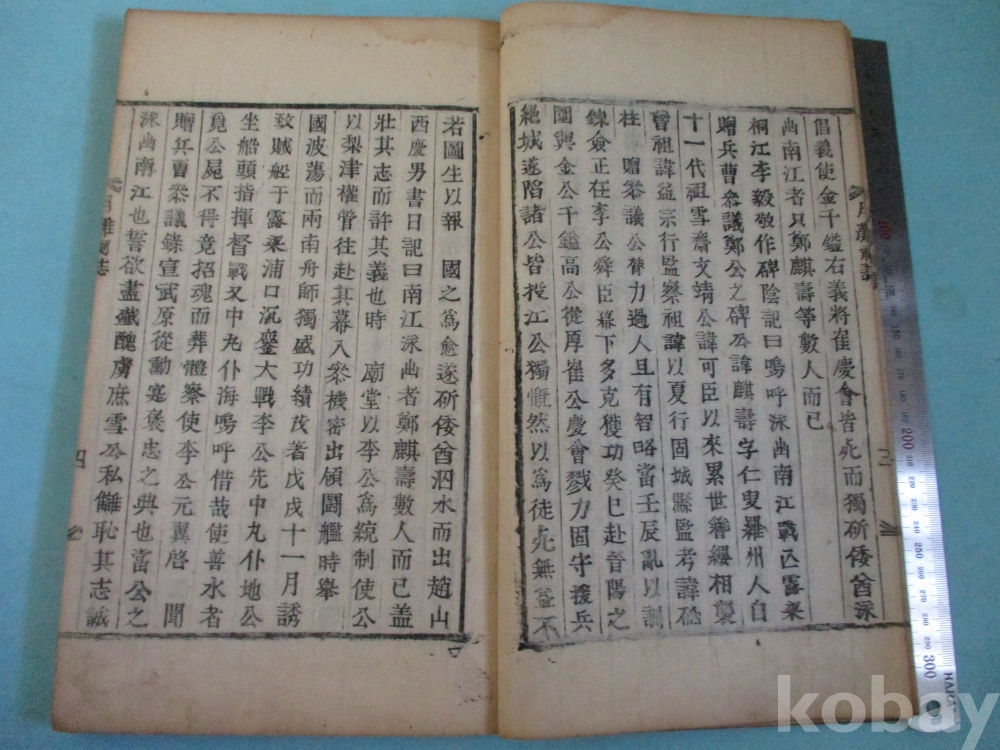 倡義使金千鎰右義將崔慶會皆死而獨斫倭酋泳
幽南江者只鄭麒壽等數人而已
桐江李毅敬作碑陰記曰嗚呼泳幽南江戰亾露梁
贈兵曹叅議鄭公之碑公諱麒壽字仁叟羅州人自
十一代祖雪齋文靖公諱可臣以來累世簪纓相襲
曾祖諱益宗行監察祖諱以夏行固城縣監考諱碒
柱 贈叅議公膂力過人且有智略當壬辰亂以訓
鍊僉正在李公舜臣幕下多克獲功癸巳赴晉陽之
圍與金公千鎰高公從厚崔公慶會戮力固守援兵
絶城遂陷諸公皆投江公獨慨然以爲徒死無益不
三
若圖生以報 國之爲愈遂斫倭酋泅水而出趙山
西慶男書日記曰南江泳幽者鄭麒壽數人而已盖
壯其志而許其義也時 廟堂以李公爲統制使公
以梨津權管往赴其幕入叅機密出傾鬪艦時擧
國波蕩而兩南舟師獨盛功績茂著戊戌十一月誘
致賊船于露梁浦口沉鏖大戰李公先中丸仆地公
坐船頭指揮督戰又中丸仆海嗚呼惜哉使善水者
覓公屍不得竟招魂而葬體察使李公元翼啓 聞
贈兵曹叅議錄宣武原從勳寔褒忠之典也當公之
泳幽南江也誓欲盡殲醜虜庶雪公私讎恥其志誠
四
kobay